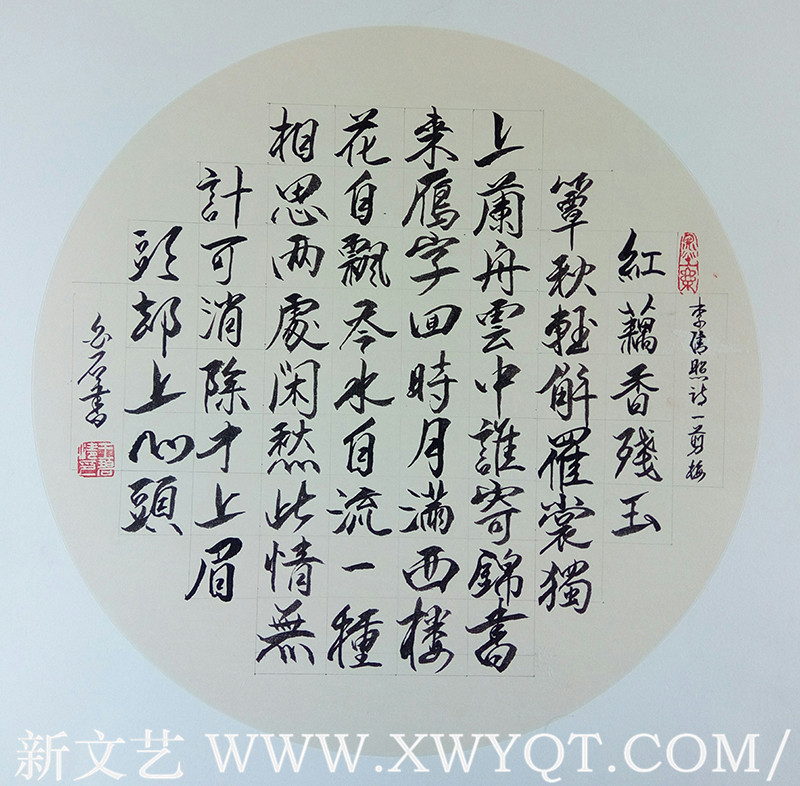 李清照诗一剪梅
紅藕香殘玉
簟秋輕解羅裳獨
上蘭舟雲中誰寄錦書
来雁字回時月滿西楼
花自飄零水自流一種
相思两處闲愁此情無
計可消除才上眉
頭却上心頭
石書
新文艺 WWW.XWYQT.COM/